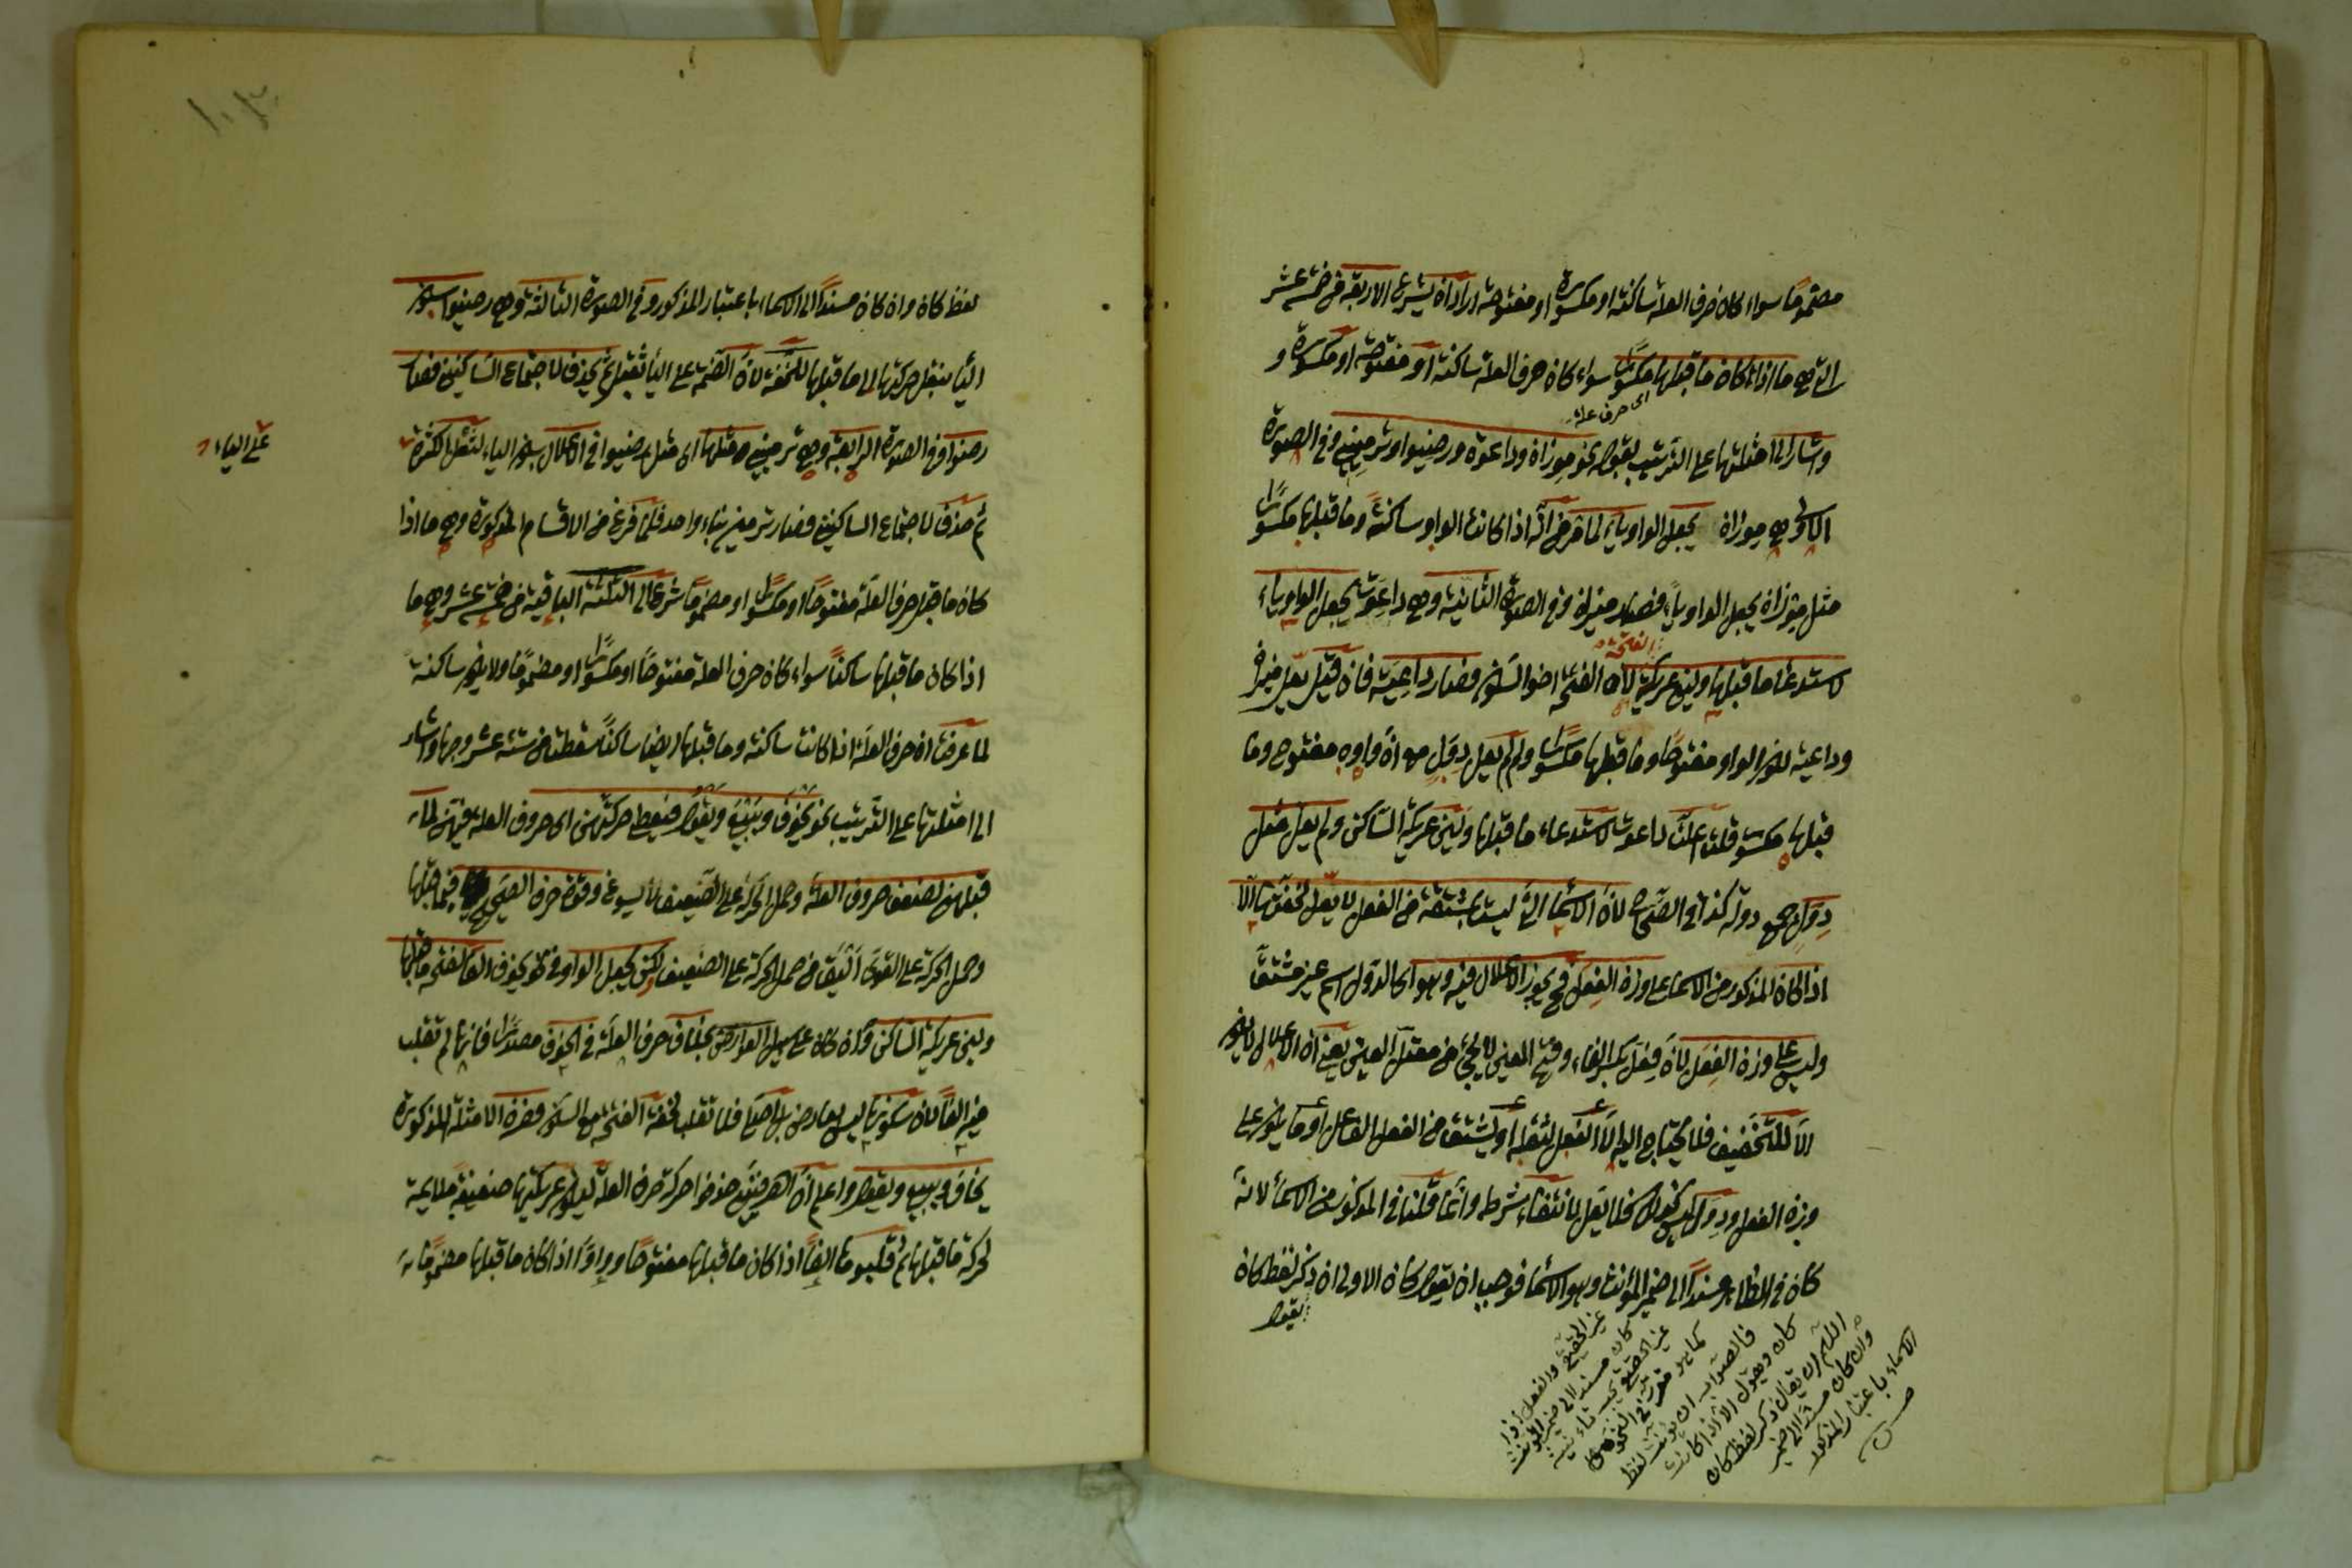 مضموما سواء كان حرف العلة ساكنة او مكسورة او مفتوحة اراد ان يشرع الاربعة من خمسة عشر
التي هي ما اذا كان ما قبلها مكسورا سواء كان حرف العلة ساكنة او مفتوحة او مكسورة و
اى حرف علة
واشار الى امثلتها على الترتيب بقوله نحو موزان وداعوة ورضيوا وترميين وفى الصورة
الاولى وهى موزان يجعل الواو ياء لما مر من انه اذا كانت الواو ساكنة وما قبلها مكسورا
مثل موزان يجعل الواو ياء فصار ميزان وفى الصورة الثانية وهى داعوة يجعل الواو ياء
الفتحة
لاستدعاء ما قبلها ولين عريكة لان الفتحة اخو السكون فصار داعية فان قيل يعل ميزان
وداعية لكون الواو مفتوحا وما قبلها مكسورا ولم لم يعل دول مع ان واوه مفتوح وما
قبلها مكسور قلت اعلت داعوة لاستدعاء ما قبلها ولين عريكة الساكن ولم يعل مثل
دول جمع دولة كذا فى الصحاح لان الاسماء التى ليست بمشتقة من الفعل لا يعل لخفتها الا
اذا كان المذكور من الاسماء على وزن الفعل فح يجوز الاعلال فيه وهو اى الدول اسم غير مشتق
وليس على وزن الفعل لان فعل بكسر الفاء وفتح العين لا يجئ من معتل العين يعنى ان الاعلال لا يكون
الا للتخفيف فلا يحتاج اليه الا الفعل لثقله او يشتق من الفعل الفاعل او ما يكون على
وزن الفعل ودول ليس كذلك فلا يعل لانتفاء شرطه وانما قلنا فى المذكور من الاسماء لانه
كان فى الظاهر مسندا الى ضمير المؤنث وهو الاسماء فوجب ان يقول كان الاولى ان ذكر لفظ كان
يقول
غير الحقيقى والفعل اذا
كان مسندا الى ضمير المؤنث
غير الحقيقى يجب تأنيثه
كما هو مقرر فى النحو
فالصواب ان يؤنث لفظ
كان ويقول الا اذا كانت
اللهم ان يقال ذكر لفظ كان
وان كان مسندا الى ضمير
الاسماء باعتبار المذكور
لفظ كان وان كان مسندا الى الاسماء باعتبار المذكور وفى الصورة الثالثة وهى رضيوا يسكن
الياء بنقل حركتها الى ما قبلها للخفة لان الضمة على الياء ثقيل ثم يحذف لاجتماع الساكنين فصار
رضوا وفى الصورة الرابعة وهى ترميين مثلها اى مثل رضيوا فى الاعلال يسكن الياء لثقل الكسرة
على الياء
ثم حذف لاجتماع الساكنين فصار ترمين بناء واحد فلما فرغ من الاقسام المذكورة وهى ما اذا
كان ما قبل حرف العلة مفتوحا او مكسورا او مضموما شرع الى الثلثة الباقية من خمسة عشر وهى ما
اذا كان ما قبلها ساكنا سواء كان حرف العلة مفتوحا او مكسورا او مضموما ولا يكون ساكنة
لما عرفت ان حرف العلة اذا كانت ساكنة وما قبلها ايضا ساكنا سقطت من ستة عشر وجها واشار
الى امثلتها على الترتيب نحو يخوف ويبيع ويقول فيعطى حركتهن اى حروف العلة فيهن لما
قبلهن لضعف حروف العلة وحمل الحركة على الضعيف لا يسوغ وقوة حرف الصحيح فيما قبلها
وحمل الحركة على القوى اليق من حمل الحركة على الضعيف ولكن يجعل الواو فى نحو يخوف الفا لفتحة ما قبلها
ولين عريكة الساكن وان كان على سبيل العارض بخلاف حرف العلة فى الخوف مصدرا فانها لم تقلب
فيه الفا لان سكونها ليس بعارض بل اصلى فلا تقلب لخفة الفتحة مع السكون فصرن الامثلة المذكورة
يخاف ويبيع ويقول واعلم ان اهل حركة حرف العلة ليكون عريكتها ضعيفة ملايمة
لحركة ما قبلها ثم قلبوها الفا اذا كان ما قبلها مفتوحا وواوا اذا كان ما قبلها مضموما